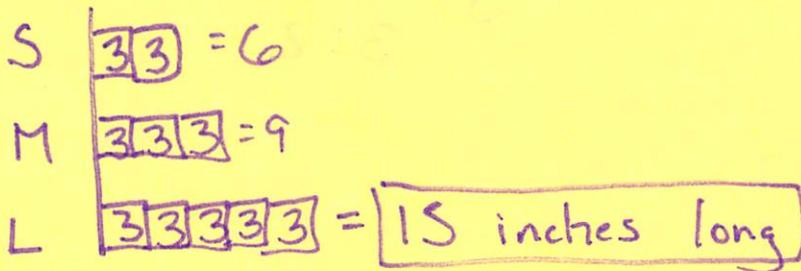 S 3 3 = 6
M 3 3 3 = 9
L 3 3 3 3 3 = 15 inches long